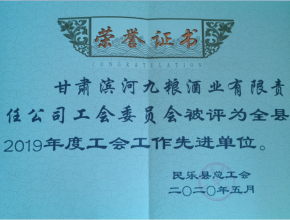 荣誉证书
CONGRATULATION
甘肃滨河九粮酒业有限责
任公司工会委员会被评为全县
2019年度工会工作先进单位。
民乐县总工会
二〇二〇年五月